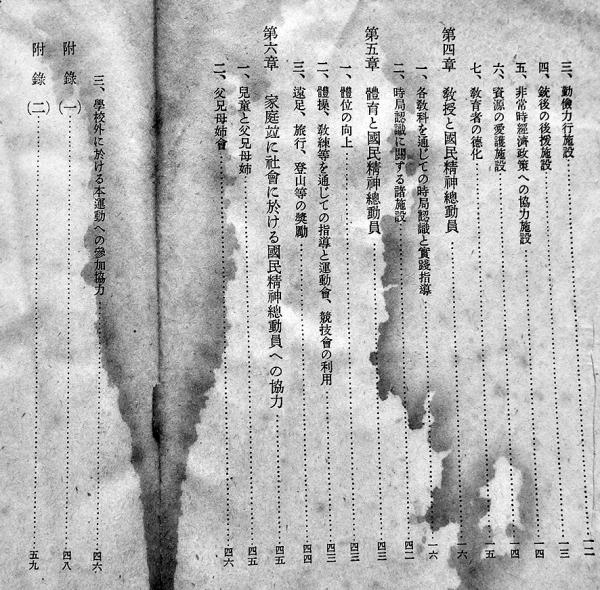 三、勤儉力行施設……一二
四、銃後の後援施設……一三
五、非常時經濟政策への協力施設……一四
六、資源の愛護施設……一四
七、敎育者の德化……一五
第四章　敎授と國民精神總動員……一六
一、各敎科を通じての時局認識と實踐指導……一六
二、時局認識に關する諸施設……四二
第五章　體育と國民精神總動員……四三
一、體位の向上……四三
二、體操、敎練等を通じての指導と運動會、競技會の利用……四三
三、遠足、旅行、登山等の獎勵……四四
第六章　家庭竝に社會に於ける國民精神總動員への協力……四五
一、兒童と父兄母姉……四五
二、父兄母姉會……四六
三、學校外に於ける本運動への參加協力……四六
附錄(一)……四八
附錄(二)……五九